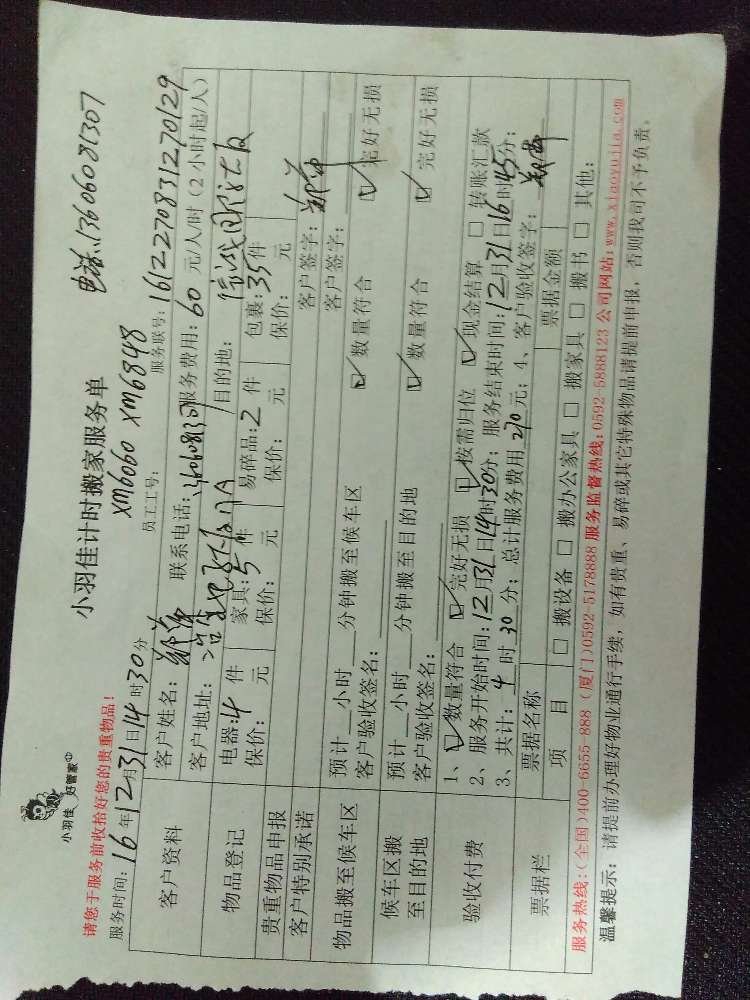 小羽佳 好管家
小羽佳计时搬家服务单
电话:13606081307
请您于服务前收拾好您的贵重物品!
XM6060 XM6848
服务时间:16年12月31日14时30分
员工工号:
服务联号:1612270831270129
客户资料
客户姓名:
联系电话:
服务费用:60元/人/时(2小时起/人)
客户地址:
目的地:
物品登记
电器:4件 家具:5件 易碎品:2件 包裹:35件
保价: 元 保价: 元 保价: 元 保价: 元
贵重物品申报
客户特别承诺
客户签字:
客户签字:
物品搬至候车区
预计 小时 分钟搬至候车区 ☑数量符合 ☑完好无损
客户验收签名:
候车区搬
至目的地
预计 小时 分钟搬至目的地 ☑数量符合 ☑完好无损
客户验收签名:
验收付费
1、☑数量符合 ☑完好无损 ☑按需归位 ☑现金结算 □转账汇款
2、服务开始时间:12月31日14时30分;服务结束时间:12月31日16时45分;
3、共计:4时30分;总计服务费用270元;4、客户验收签字:
票据栏
票据名称 票据金额
项目 □搬设备 □搬办公家具 □搬家具 □搬书 □其他:
服务热线:(全国)400-6655-888 (厦门)0592-5178888 服务监督热线:0592-5888123 公司网站:www.xiaoyujia.com
温馨提示:请提前办理好物业通行手续,如有贵重、易碎或其它特殊物品请提前申报,否则我司不予负责。